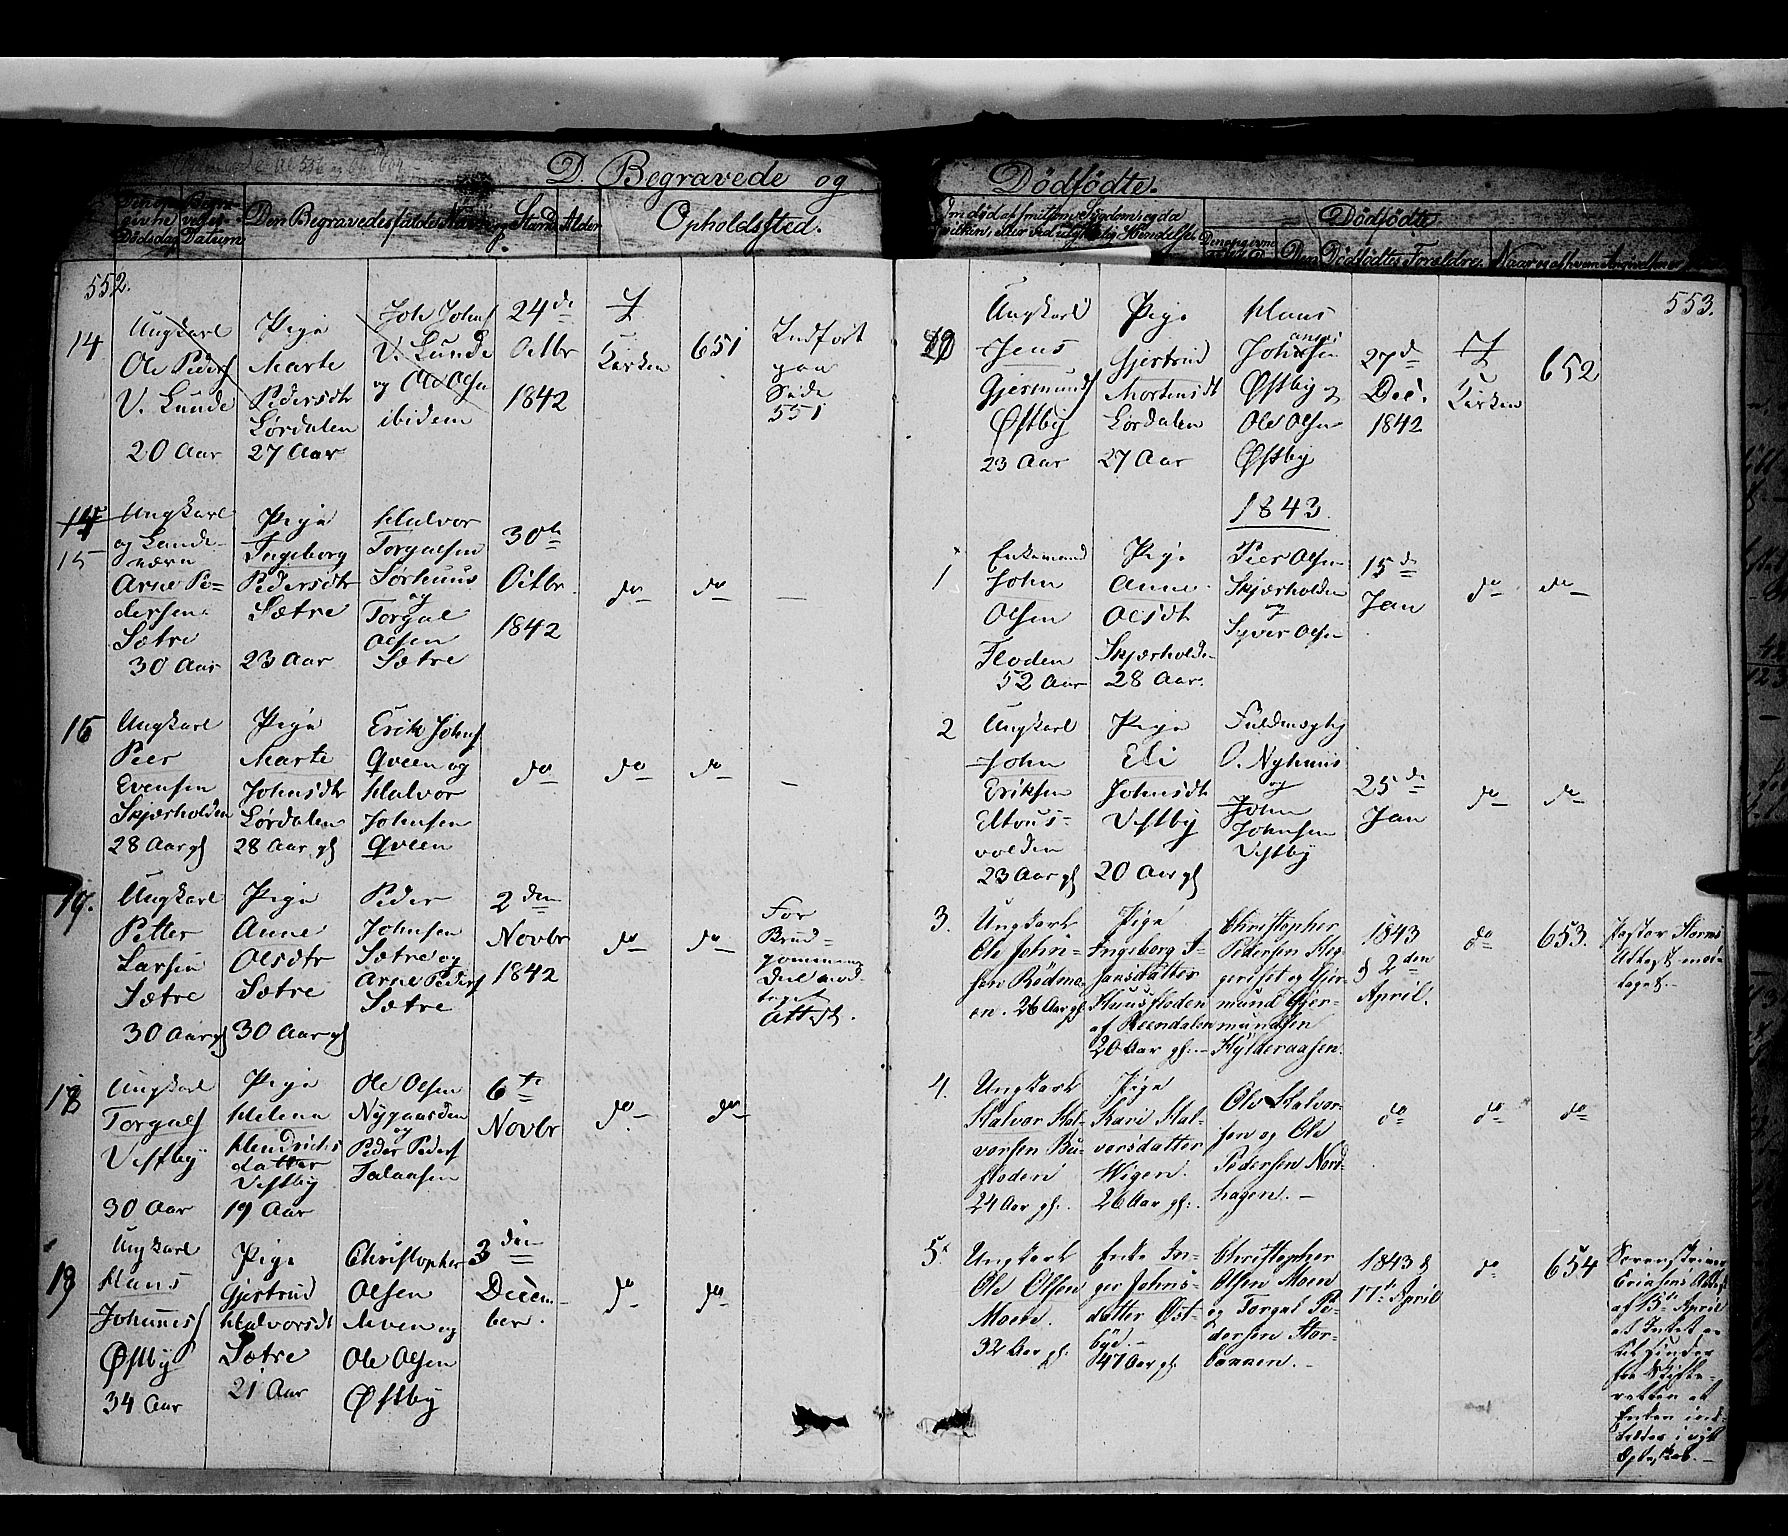 D. Begravede og Dödfödte.
Den Begravedes fulde Navn og Stand
Alder
Opholdssted.
Dödfödte
Den Dödfödtes Forældre.
552.
14
Ungkarl
Ole Peders
V. Lunde
20 Aar
Pige
Marte
Pedersdtr
Lørdalen
27 Aar
Joh Johns
V. Lunde
og Ole Olsen
ibidem
24de
Octbr
1842
I
Kirken
651
Indført
paa
Side
551
15
Ungkarl
og Lande-
værn
Arne Pe-
dersen
Sætre
30 Aar
Pige
Ingeborg
Pedersdtr
Sætre
23 Aar
Halvor
Torgalsen
Sørhuus
og
Torgal
Olsen
Sætre
30te
Octbr
1842
do
do
—
16
Ungkarl
Peer
Evensen
Skjærholden
28 Aar gl
Pige
Marte
Johnsdtr
Lørdalen
28 Aar gl
Erik Johns
Qveen og
Halvor
Johnsen
Qveen
do
do
do
—
17.
Ungkarl
Petter
Larsen
Sætre
30 Aar gl
Pige
Anne
Olsdtr
Sætre
30 Aar gl
Peder
Johnsen
Sætre og
Arne Peders
Sætre
2den
Novbr
1842
do
do
For
Brud-
gommens
Deel mod-
taget
Attest.
18
Ungkarl
Torgals
Vestby
30 Aar
Pige
Helena
Hendrichs
datter
Vestby
19 Aar
Ole Olsen
Nygaarden
og
Peder Peders
Falaasen
6te
Novbr
do
do
19
Ungkarl
Hans
Johannes
Østby
34 Aar
Pige
Gjertrud
Halvorsdt
Sætre
21 Aar
Christopher
Olsen
Moen og
Ole Olsen
Østby
3die
Decem-
ber.
do
do
553.
20
Ungkarl
Jens
Gjermunds
Østby
23 Aar
Pige
Gjertrud
Mortensdt
Lørdalen
27 Aar
Hans
Johansen
Østby og
Ole Olsen
Østby
27de
Dec.
1842
I
Kirken
652
1843
1
Enkemand
John
Olsen
Floden
52 Aar
Pige
Anne
Olsdt
Skjærholde
28 Aar
Peer Olsen
Skjærholden
og
Syver Olsen
15de
Jan
do
do
2
Ungkarl
John
Eriksen
Eltvus-
volden
23 Aar gl
Pige
Eli
Johnsdt
Vestby
20 Aar gl
O. Nyhuus
og
John
Johnsen
Vestby
25de
Jan
do
do
3.
Ungkarl
Ole John-
sen Rödmo-
en. 26 Aar gl.
Pige
Ingeborg J-
hansdatter
Huusfloden
af Reendalen
20 Aar gl.
Christopher
Pedersen Heg-
geriset og Gjer-
mund Gjer-
mundsen
Hylleraasen.
1843
d 2den
April.
do
653.
Pastor Storms
Attest mod-
taget.
4.
Ungkarl
Halvor Hal-
vorsen Bu-
floden
24 Aar gl.
Pige
Kari Hal-
vorsdatter
Wigen.
26 Aar gl.
Ole Halvor-
sen og Ole
Pedersen Nord-
hagen.
do
do
do
5.
Ungkarl
Ole Olsen
Moen.
32 Aar gl.
Enke In-
ger Johns-
datter Øst-
bye.
47 Aar gl.
Christopher
Olsen Moen
og Torgal Pe-
dersen Stor-
bækken.
1843 d
17de April
do
654
Sorenskriver
Eriksens Attest
af 13de April
at Intet er
til hinder
fra Skifte-
retten at
Enken ind-
træder i nyt
Ægteskab.